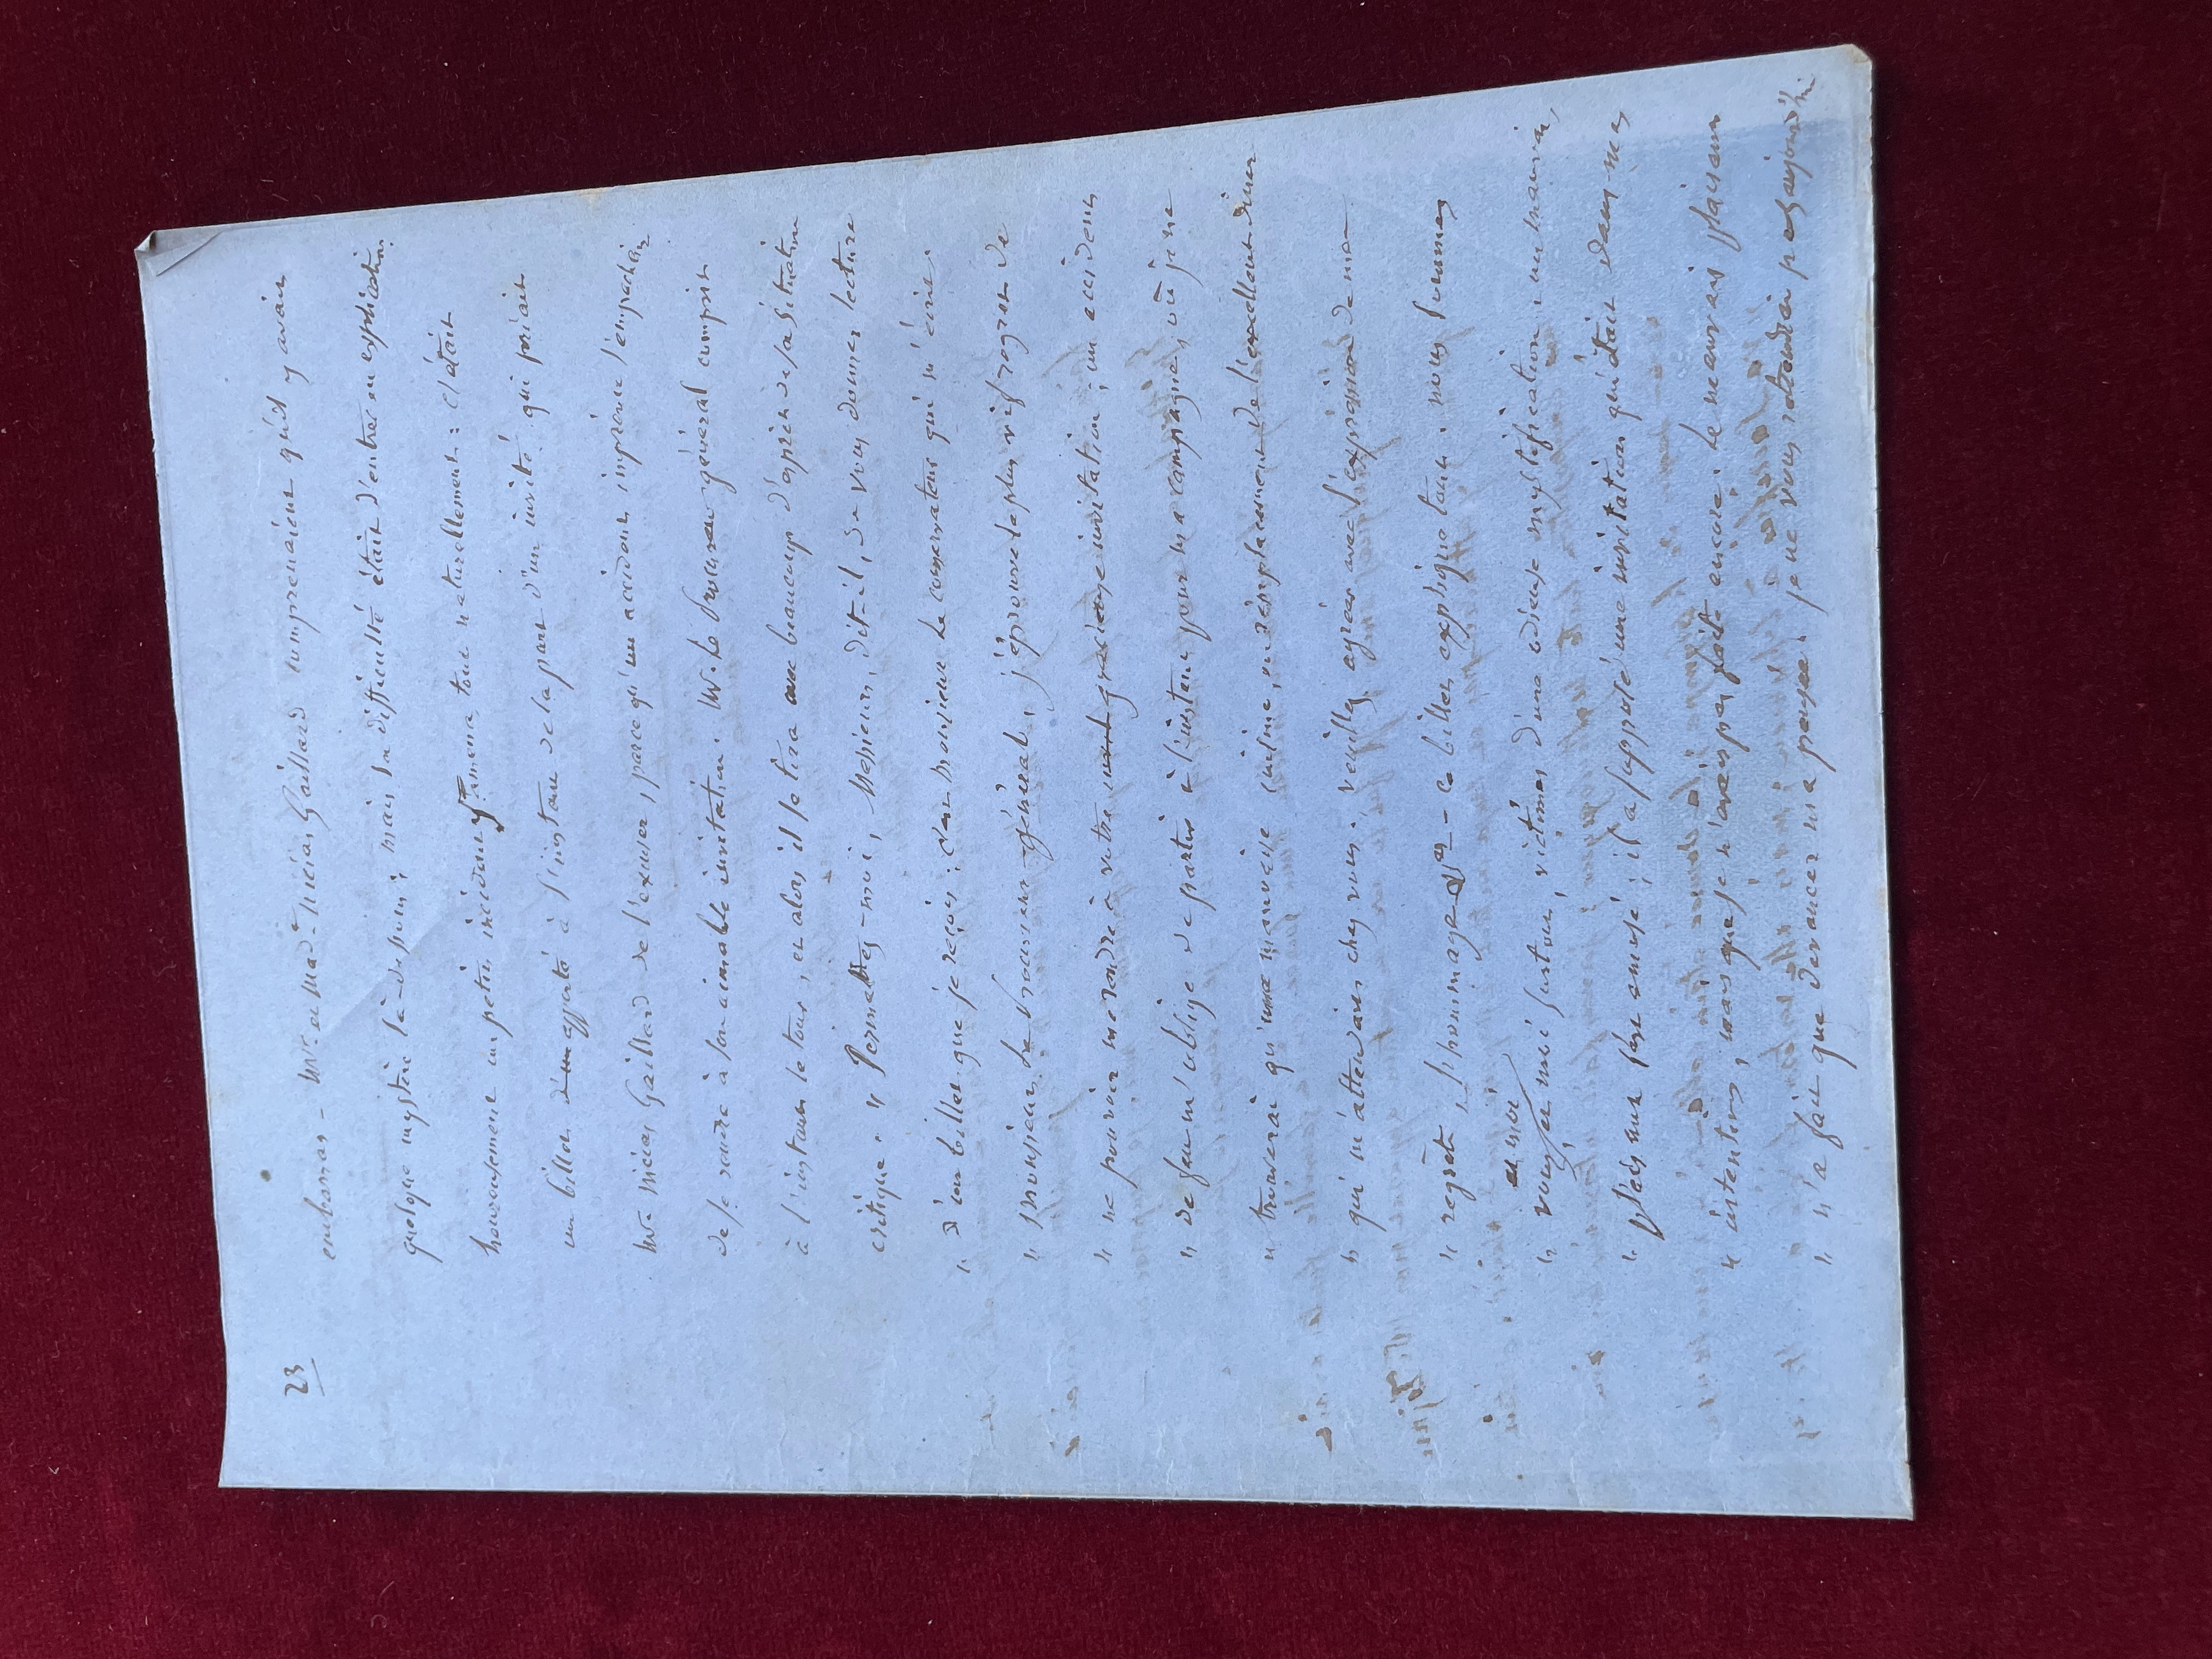 23
embarras - Mr. et Made Nicias Gaillard comprenaient qu'il y avait
quelque mystère là-dessous; mais la difficulté était d'entrer en explication.
heureusement un petit incident l'amena tout naturellement: c'était
un billet d'un apporté à l'instant de la part d'un invité qui priait
Mr. Nicias Gaillard de l'excuser, parce qu'un accident imprévu l'empêchait
de se rendre à son aimable invitation. Mr. le Procureur général comprit
à l'instant le tour, et alors il se tira avec beaucoup d'esprit de sa situation
critique. " Permettez-moi, Messieurs, dit-il, de vous donner lecture
" d'un billet que je reçois: c'est Monsieur le conservateur qui m'écrit.
" Monsieur le Procureur général, j'éprouve le plus vif regret de
" ne pouvoir me rendre à votre gracieuse invitation; un accident
" de four m'oblige de partir à l'instant pour ma campagne, où je ne
" trouverai qu'une mauvaise cuisine, en remplacement de l'excellent dîner
" qui m'attendait chez vous. veuillez agréer avec l'expression de mon
" regret, l'hommage &a - ce billet explique tout. nous sommes
et moi
" vous, Messieurs, victimes d'une odieuse mystification. un mauvais
" plaisant s'est amusé; il a supposé une invitation qui était dans mes
" intentions, mais que je n'avais pas faite encore. le mauvais plaisant
" n'a fait que devancer ma pensée. je ne vous retiendrai pas aujourd'hui